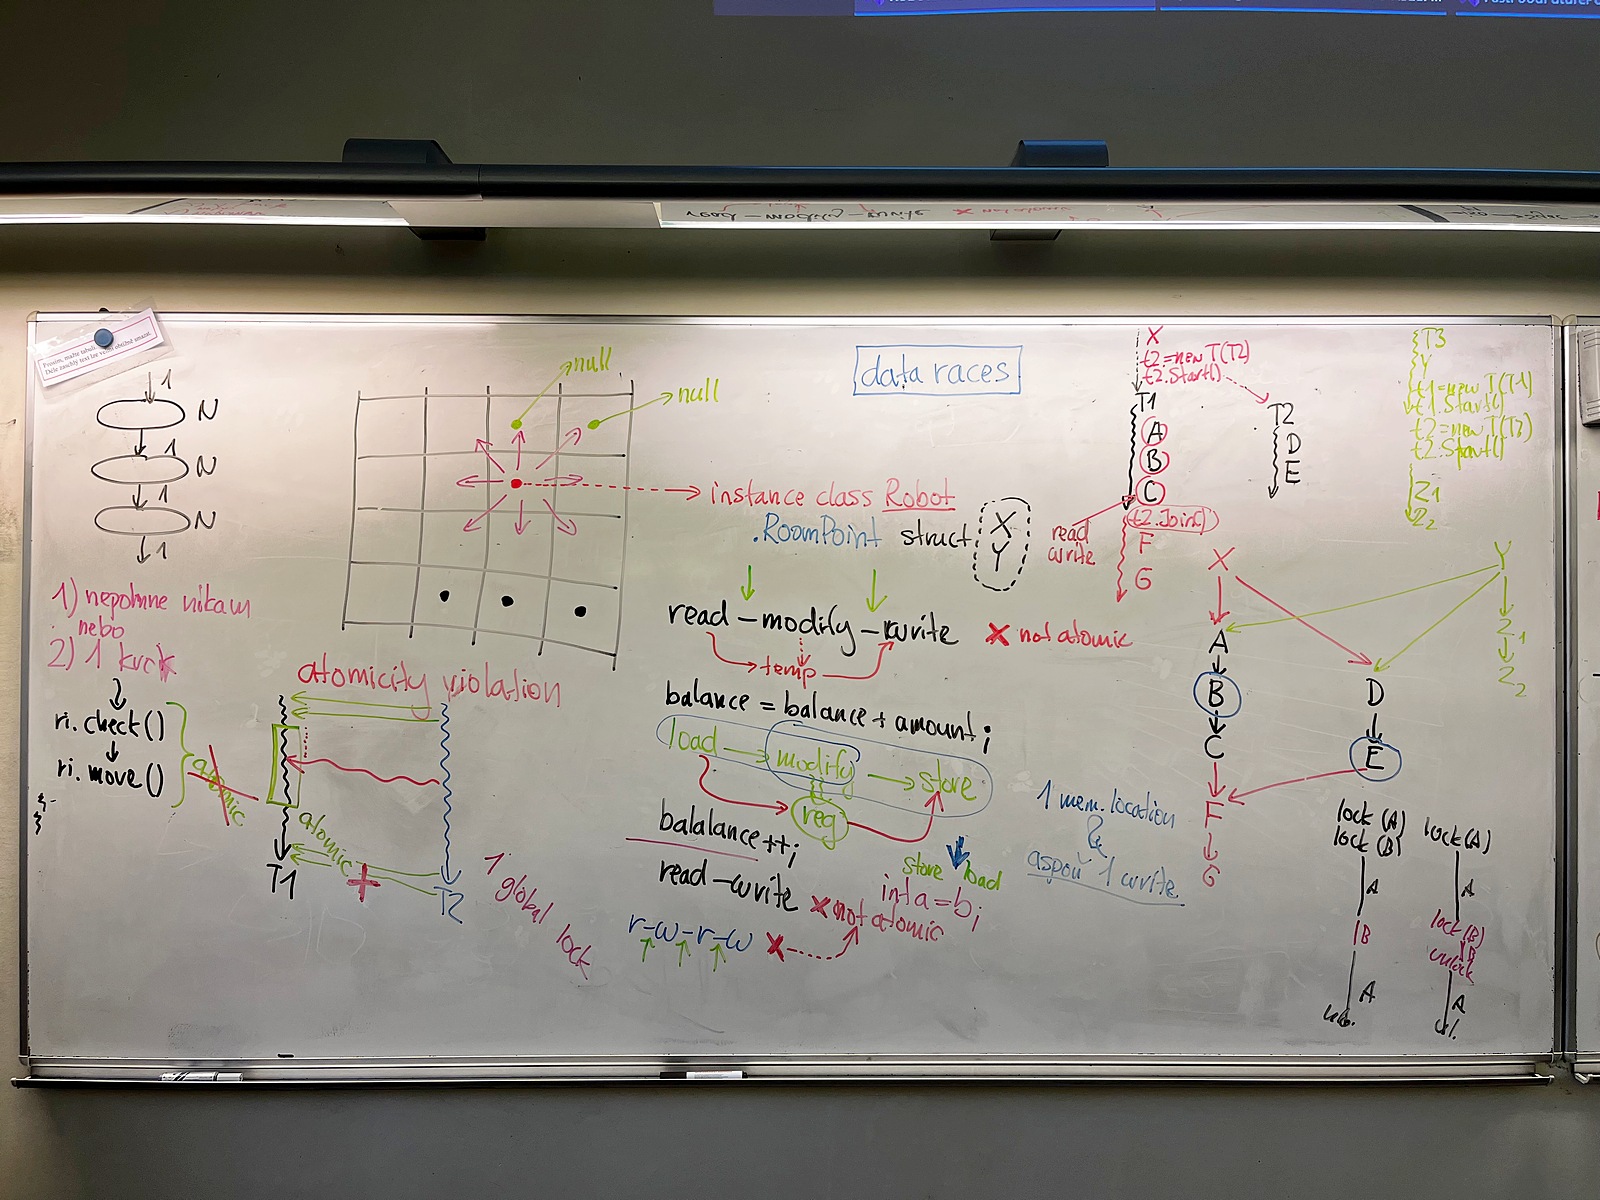 Prosím, mažte tabuli.
Déle zaschlý text lze velmi obtížně smazat.
1
N
1
N
1
N
1
1) nepohne nikam
nebo
2) 1 krok
ri.check()
ri.move()
atomic
null
null
instance class Robot
.RoomPoint struct
X
Y
atomicity violation
atomic
T1
T2
1 global lock
data races
read – modify – write
X not atomic
temp
balance = balance + amount;
load modify store
reg
balalance++;
read – write X not atomic
store load
int a = b;
r-w-r-w X
1 mem. location
&
aspoň 1 write
X
t2=new T(T2)
t2.Start()
T1
A
B
C
t2.Join()
F
G
read
write
T2
D
E
T3
Y
t1=new T(T1)
t1.Start()
t2=new T(T3)
t2.Start()
Z1
Z2
X
Y
A
B
C
F
G
D
E
Z1
Z2
lock (A)
lock (B)
A
B
A
lock (A)
A
lock (B)
B
unlock
A